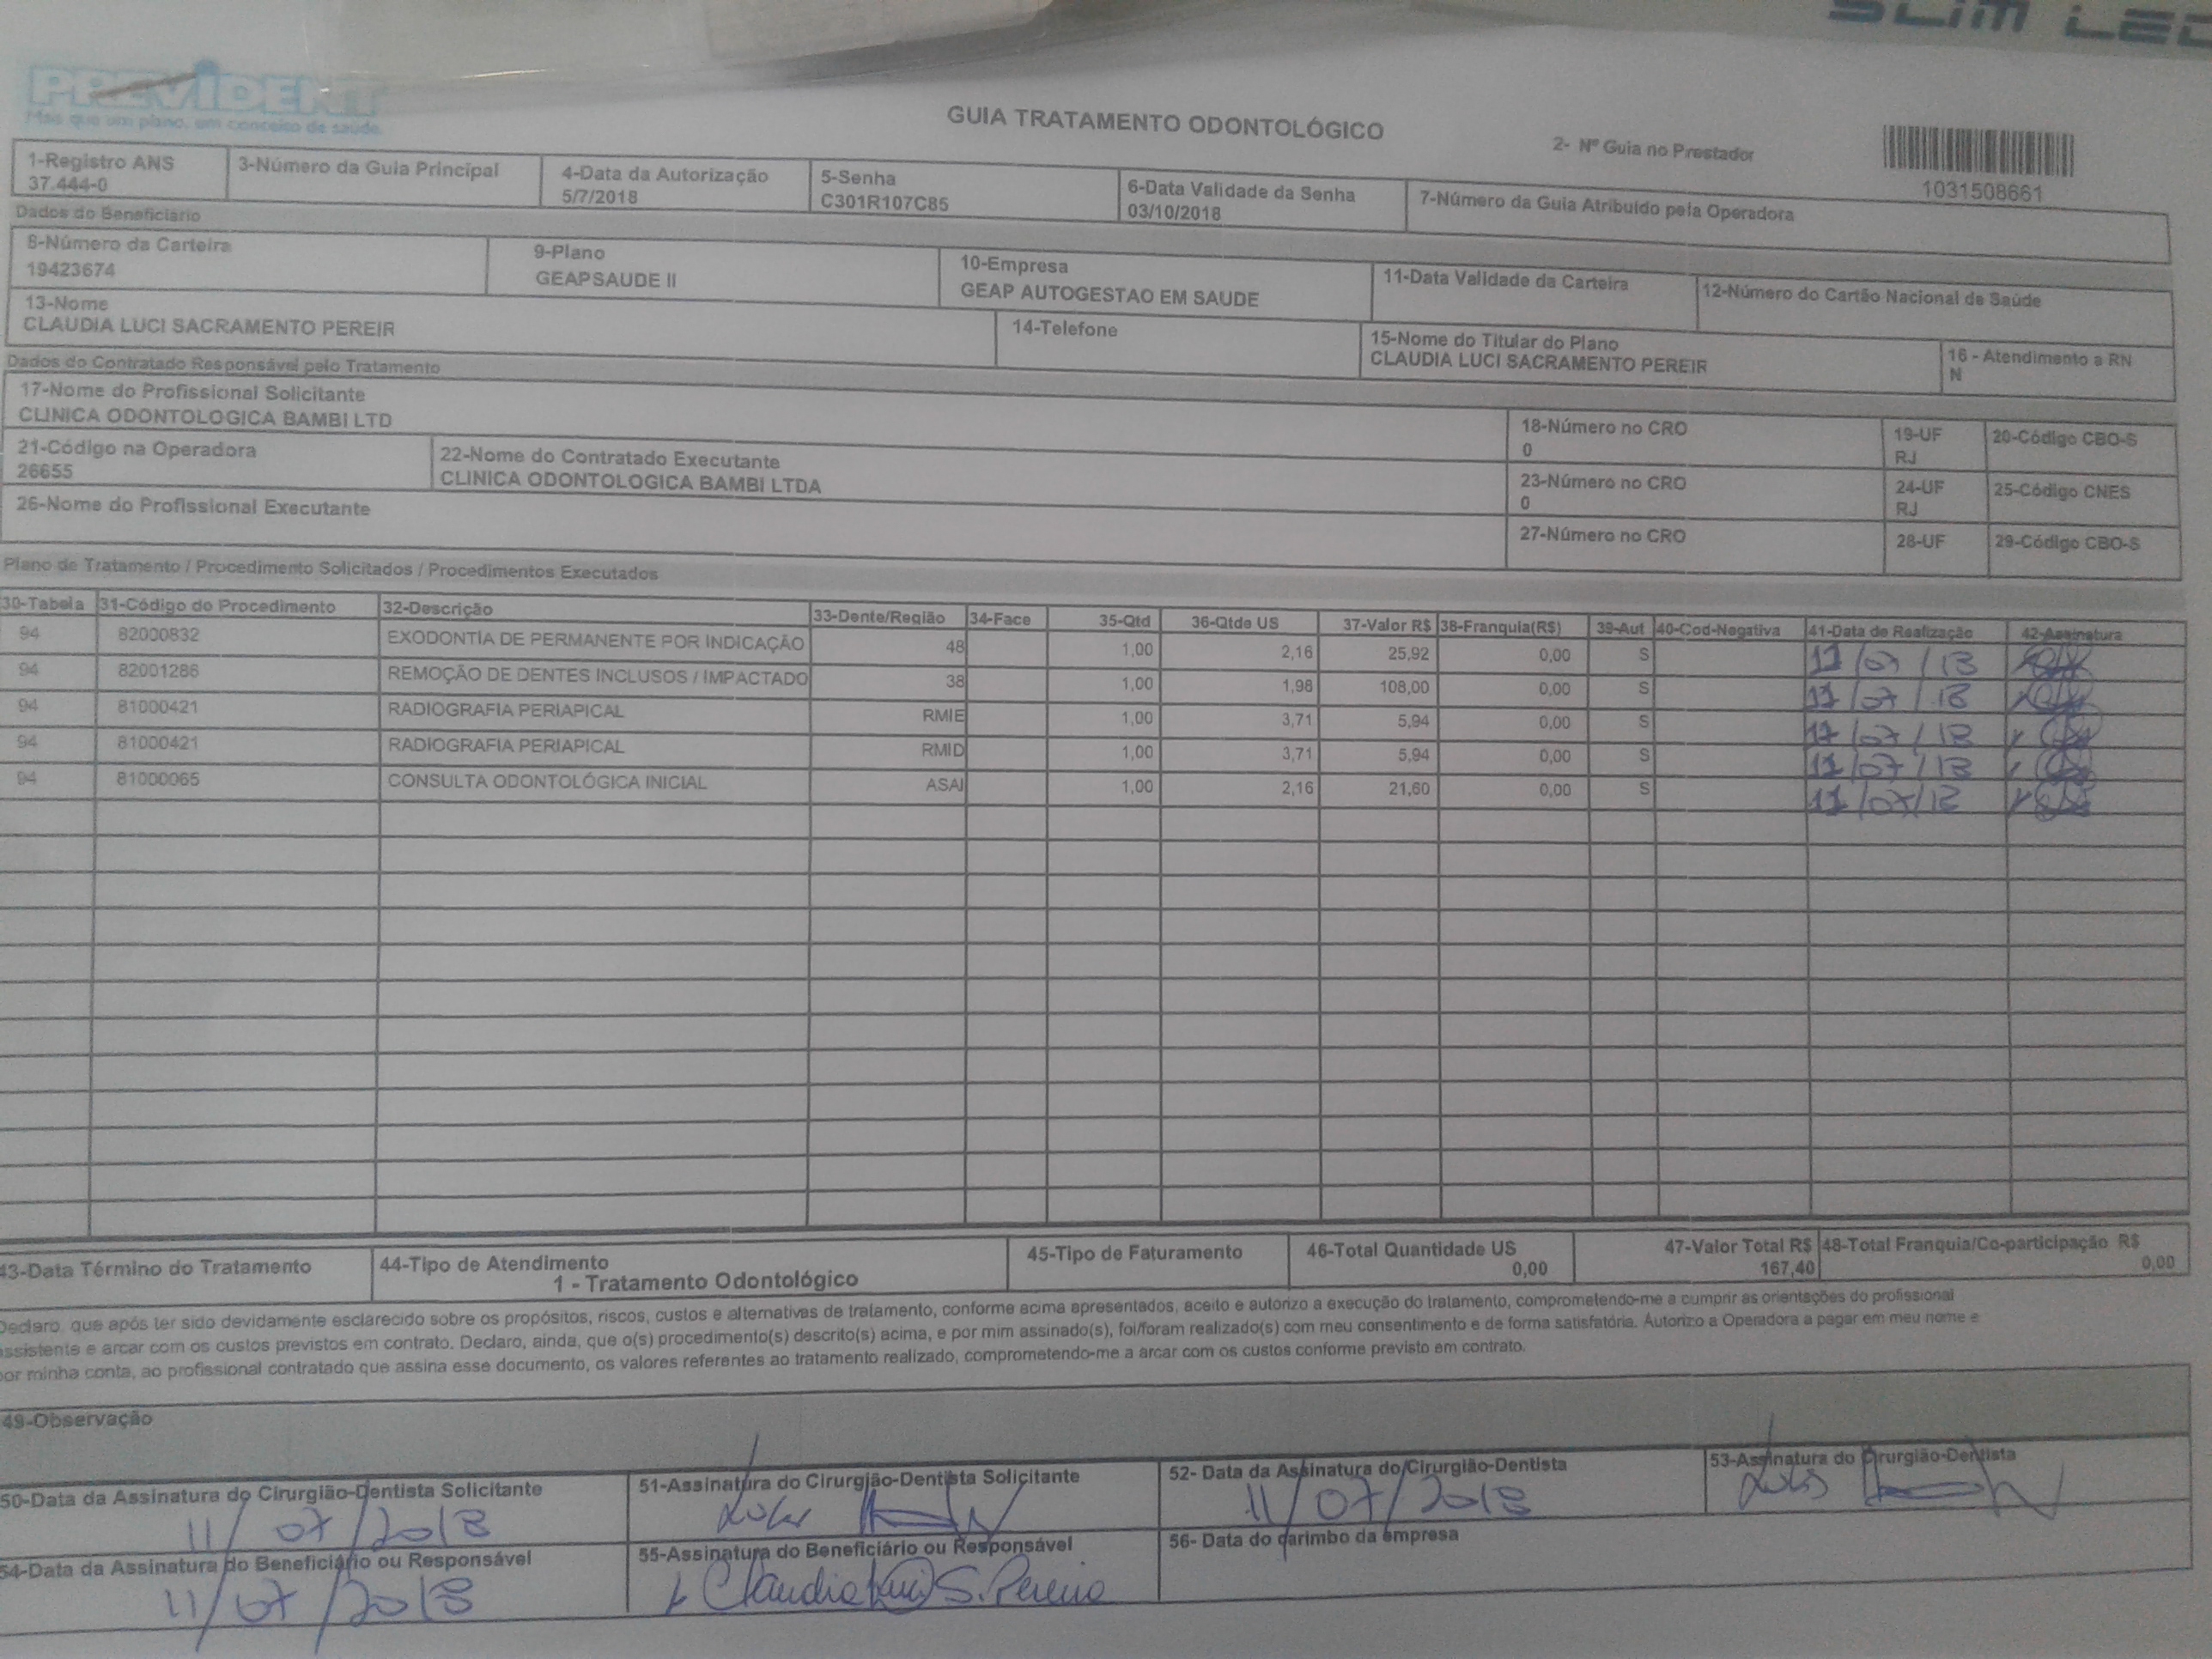 SLIM LED
PREVIDENT
Mais que um plano, um conceito de saúde.
GUIA TRATAMENTO ODONTOLÓGICO
2- Nº Guia no Prestador
1031508661
1-Registro ANS
37.444-0
3-Número da Guia Principal
4-Data da Autorização
5/7/2018
5-Senha
C301R107C85
6-Data Validade da Senha
03/10/2018
7-Número da Guia Atribuído pela Operadora
Dados do Beneficiário
8-Número da Carteira
19423674
9-Plano
GEAPSAUDE II
10-Empresa
GEAP AUTOGESTAO EM SAUDE
11-Data Validade da Carteira
12-Número do Cartão Nacional de Saúde
13-Nome
CLAUDIA LUCI SACRAMENTO PEREIR
14-Telefone
15-Nome do Titular do Plano
CLAUDIA LUCI SACRAMENTO PEREIR
16 - Atendimento a RN
N
Dados do Contratado Responsável pelo Tratamento
17-Nome do Profissional Solicitante
CLINICA ODONTOLOGICA BAMBI LTD
18-Número no CRO
0
19-UF
RJ
20-Código CBO-S
21-Código na Operadora
26655
22-Nome do Contratado Executante
CLINICA ODONTOLOGICA BAMBI LTDA
23-Número no CRO
0
24-UF
RJ
25-Código CNES
26-Nome do Profissional Executante
27-Número no CRO
28-UF
29-Código CBO-S
Plano de Tratamento / Procedimento Solicitados / Procedimentos Executados
30-Tabela 31-Código do Procedimento 32-Descrição 33-Dente/Região 34-Face 35-Qtd 36-Qtde US 37-Valor R$ 38-Franquia(R$) 39-Aut 40-Cod-Negativa 41-Data de Realização 42-Assinatura
94 82000832 EXODONTIA DE PERMANENTE POR INDICAÇÃO 48 1,00 2,16 25,92 0,00 S 11/07/18
94 82001286 REMOÇÃO DE DENTES INCLUSOS / IMPACTADO 38 1,00 1,98 108,00 0,00 S 11/07/18
94 81000421 RADIOGRAFIA PERIAPICAL RMIE 1,00 3,71 5,94 0,00 S 11/07/18
94 81000421 RADIOGRAFIA PERIAPICAL RMID 1,00 3,71 5,94 0,00 S 11/07/18
94 81000065 CONSULTA ODONTOLÓGICA INICIAL ASAI 1,00 2,16 21,60 0,00 S 11/07/18
43-Data Término do Tratamento
44-Tipo de Atendimento
1 - Tratamento Odontológico
45-Tipo de Faturamento
46-Total Quantidade US
0,00
47-Valor Total R$
167,40
48-Total Franquia/Co-participação R$
0,00
Declaro, que após ter sido devidamente esclarecido sobre os propósitos, riscos, custos e alternativas de tratamento, conforme acima apresentados, aceito e autorizo a execução do tratamento, comprometendo-me a cumprir as orientações do profissional
assistente e arcar com os custos previstos em contrato. Declaro, ainda, que o(s) procedimento(s) descrito(s) acima, e por mim assinado(s), foi/foram realizado(s) com meu consentimento e de forma satisfatória. Autorizo a Operadora a pagar em meu nome e
por minha conta, ao profissional contratado que assina esse documento, os valores referentes ao tratamento realizado, comprometendo-me a arcar com os custos conforme previsto em contrato.
49-Observação
50-Data da Assinatura do Cirurgião-Dentista Solicitante
11/07/2018
51-Assinatura do Cirurgião-Dentista Solicitante
52- Data da Assinatura do Cirurgião-Dentista
11/07/2018
53-Assinatura do Cirurgião-Dentista
54-Data da Assinatura do Beneficiário ou Responsável
11/07/2018
55-Assinatura do Beneficiário ou Responsável
Claudia Luci S. Pereira
56- Data do carimbo da empresa